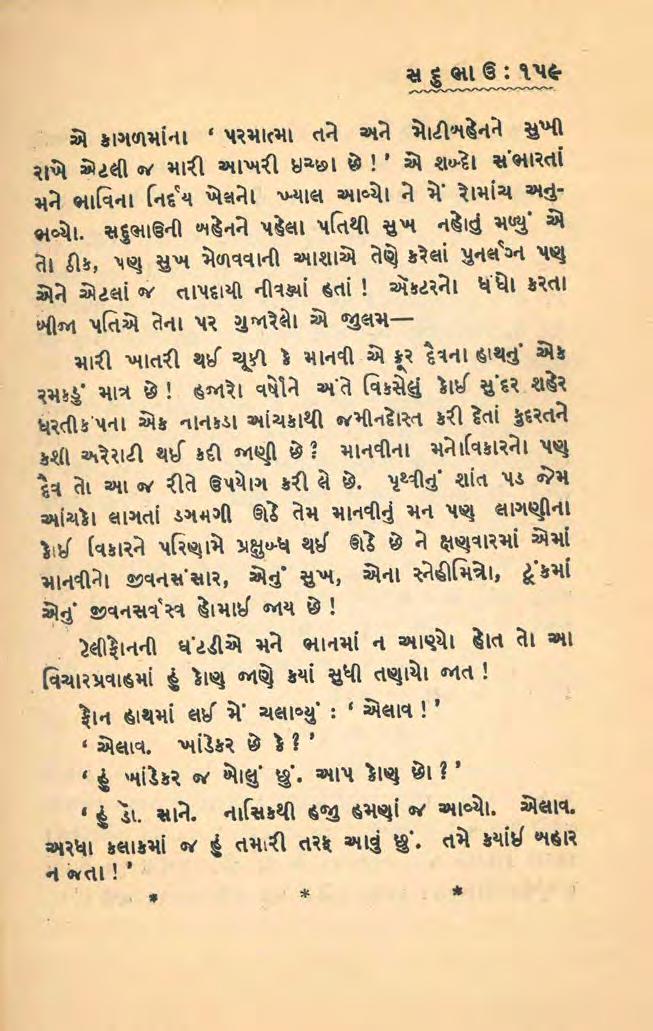 સદુભાઉ : ૧૫૯
એ કાગળમાંના ‘ પરમાત્મા તને અને મોટીબહેનને સુખી
રાખે એટલી જ મારી આખરી ઇચ્છા છે ! ’ એ શબ્દો સંભારતાં
મને ભાવિના નિર્દય ખેલનો ખ્યાલ આવ્યો ને મેં રોમાંચ અનુ-
ભવ્યો. સદુભાઉની બહેનને પહેલા પતિથી સુખ નહોતું મળ્યું એ
તો ઠીક, પણ સુખ મેળવવાની આશાએ તેણે કરેલાં પુનર્લગ્ન પણ
એને એટલાં જ તાપદાયી નીવડ્યાં હતાં ! ઍક્ટરનો ધંધો કરતા
બીજા પતિએ તેના પર ગુજારેલો એ જુલમ—
મારી ખાતરી થઈ ચૂકી કે માનવી એ ક્રૂર દૈવના હાથનું એક
રમકડું માત્ર છે ! હજારો વર્ષોને અંતે વિકસેલું કોઈ સુંદર શહેર
ધરતીકંપના એક નાનકડા આંચકાથી જમીનદોસ્ત કરી દેતાં કુદરતને
કશી અરેરાટી થઈ કદી જાણી છે ? માનવીના મનોવિકારનો પણ
દૈવ તો આ જ રીતે ઉપયોગ કરી લે છે. પૃથ્વીનું શાંત પડ જેમ
આંચકો લાગતાં ડગમગી ઊઠે તેમ માનવીનું મન પણ લાગણીના
કોઈ વિકારને પરિણામે પ્રક્ષુબ્ધ થઈ ઊઠે છે ને ક્ષણવારમાં એમાં
માનવીનો જીવનસંસાર, એનું સુખ, એના સ્નેહીમિત્રો, ટૂંકમાં
એનું જીવનસર્વસ્વ હોમાઈ જાય છે !
ટેલીફોનની ઘંટડીએ મને ભાનમાં ન આણ્યો હોત તો આ
વિચારપ્રવાહમાં હું કોણ જાણે ક્યાં સુધી તણાયો જાત !
ફોન હાથમાં લઈ મેં ચલાવ્યું : ‘ એલાવ ! ’
‘ એલાવ. ખાંડેકર છે કે ? ’
‘ હું ખાંડેકર જ બોલું છું. આપ કોણ છો ? ’
‘ હું ડૉ. સાને. નાસિકથી હજુ હમણાં જ આવ્યો. એલાવ.
અરધા કલાકમાં જ હું તમારી તરફ આવું છું. તમે ક્યાંઈ બહાર
ન જતા ! ’
* * *